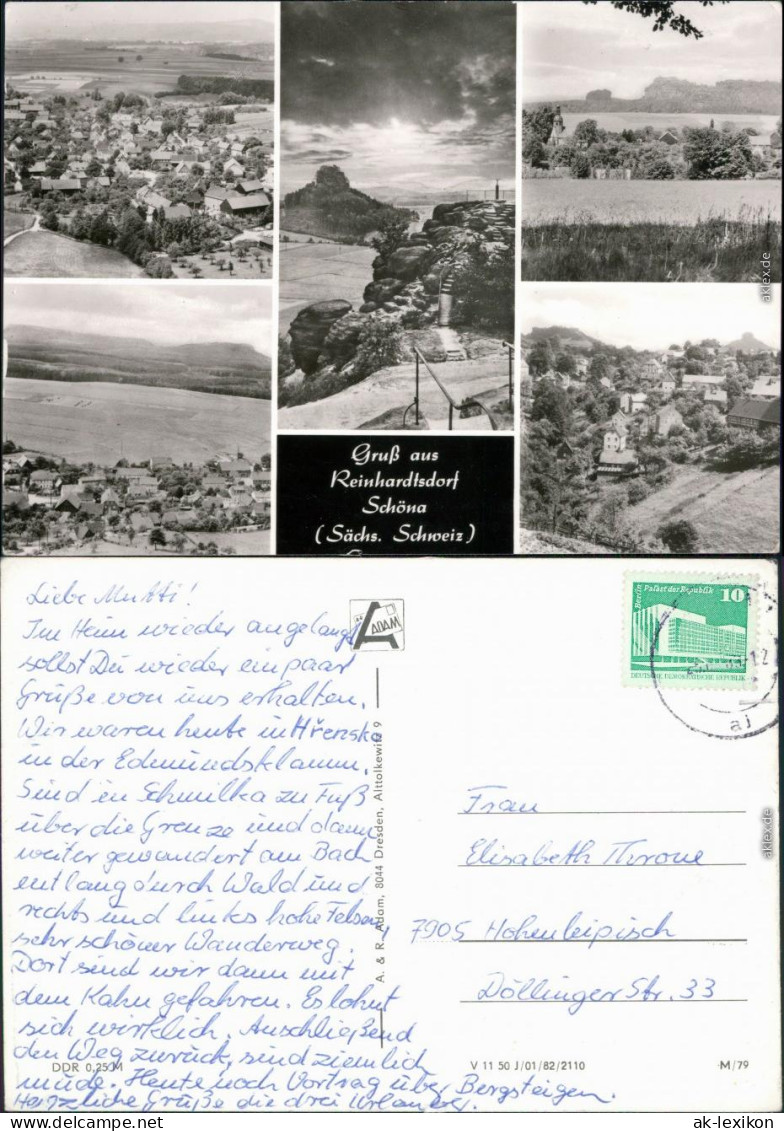 Gruß aus
Reinhardtsdorf
Schöna
(Sächs. Schweiz)
aklex.de
aklex.de
Liebe Mutti!
Im Heim wieder angelangt
sollst Du wieder ein paar
Grüße von uns erhalten.
Wir waren heute in Hřensko
in der Edmundsklamm.
Sind in Schmilka zu Fuß
über die Grenze und dann
weiter gewandert am Bach
entlang durch Wald und
rechts und links hohe Felsen,
sehr schöner Wanderweg.
Dort sind wir dann mit
dem Kahn gefahren. Es lohnt
sich wirklich. Anschließend
den Weg zurück, sind ziemlich
müde. Heute noch Vortrag über Bergsteigen.
Herzliche Grüße die drei Urlauber.
DDR 0,25 M
ADAM
A. & R. Adam, 8044 Dresden, Alttolkewitz 9
Berlin Palast der Republik 10
DEUTSCHE DEMOKRATISCHE REPUBLIK
aj
Frau
Elisabeth Throne
7905 Hohenleipisch
Döllinger Str. 33
V 11 50 J/01/82/2110
M/79
aklex.de
ak-lexikon